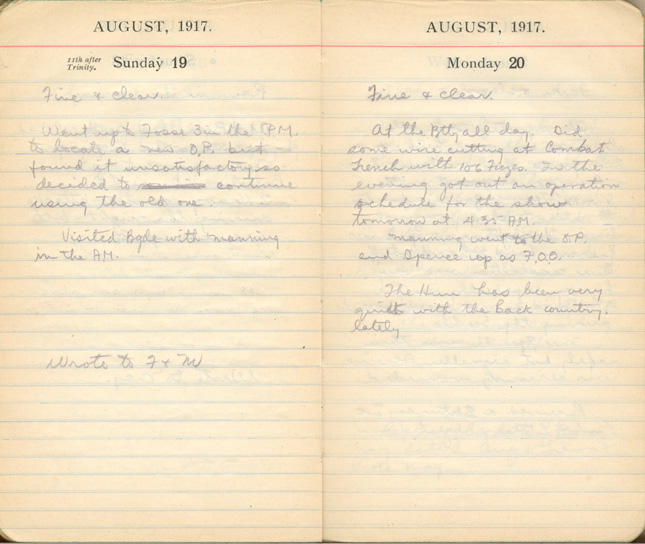 AUGUST, 1917.
11th after Trinity. Sunday 19
Fine & clear.
Went up to Fosse 3 in the P.M.
to locate a new O.P. but
found it unsatisfactory so
decided to continue
using the old one.
Visited Bgde with Manning
in the AM.
Wrote to F & M
AUGUST, 1917.
Monday 20
Fine & clear.
At the Bty all day. Did
some wire cutting at Combat
Trench with 106 Fuzes. In the
evening got out an operation
schedule for the show
tomorrow at 4.35 AM.
Manning went to the O.P.
and Spence up as F.O.O.
The Hun has been very
quiet with the back country.
lately